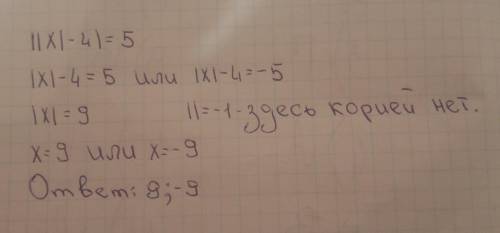 ||x|-4|=5
|x|-4=5 или |x|-4=-5
|x|=9 ||=-1-здесь корней нет.
x=9 или x=-9
Ответ: 9;-9